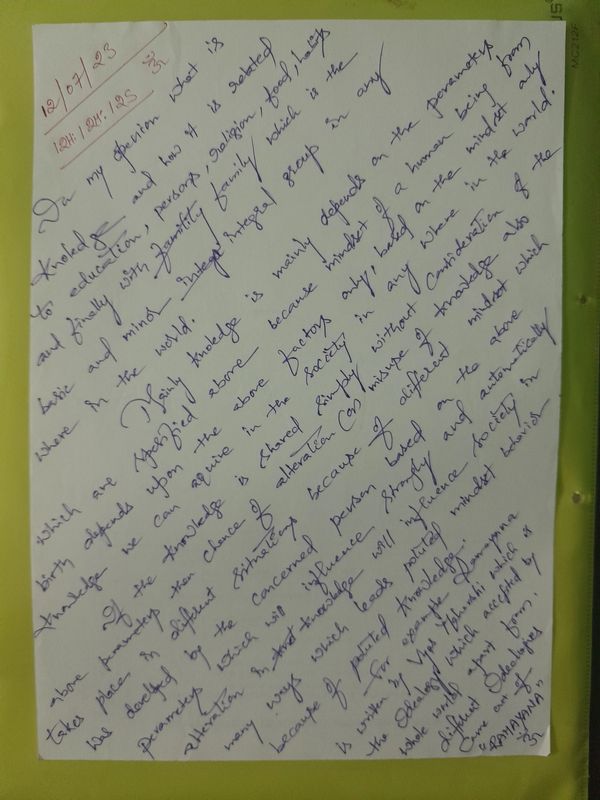 12/07/23
12H:12M:12S
In my openion what is
knoledge and how it is related
to education, persons, religion, food, habits
and finally with family family which is the
basic and minor integral group in any
where in the world.
Mainly knoledge is mainly depends on the parameters
which are specified above because mindset of a human being from
birth depends upon the above factors only, based on the mindset only
knowledge we can aquire in the society in any where in the world.
If the knowledge is shared simply without consideration of the
above parameters then chance of alteration (or) misuse of knowledge also
takes place in different situations because of different mindset which
was develped by the concerned person based on the above
parameters which will influence strongly and automatically
alteration in knowledge will influence society in
many ways which leads poluted mindset behavior
because of poluted knowledge.
For example Ramayana
is written by Vyas Maharshi which is
the Idealogy which accepted by
whole world apart from.
different Ideologies
Came out of
"RAMAYANA"
MC212F